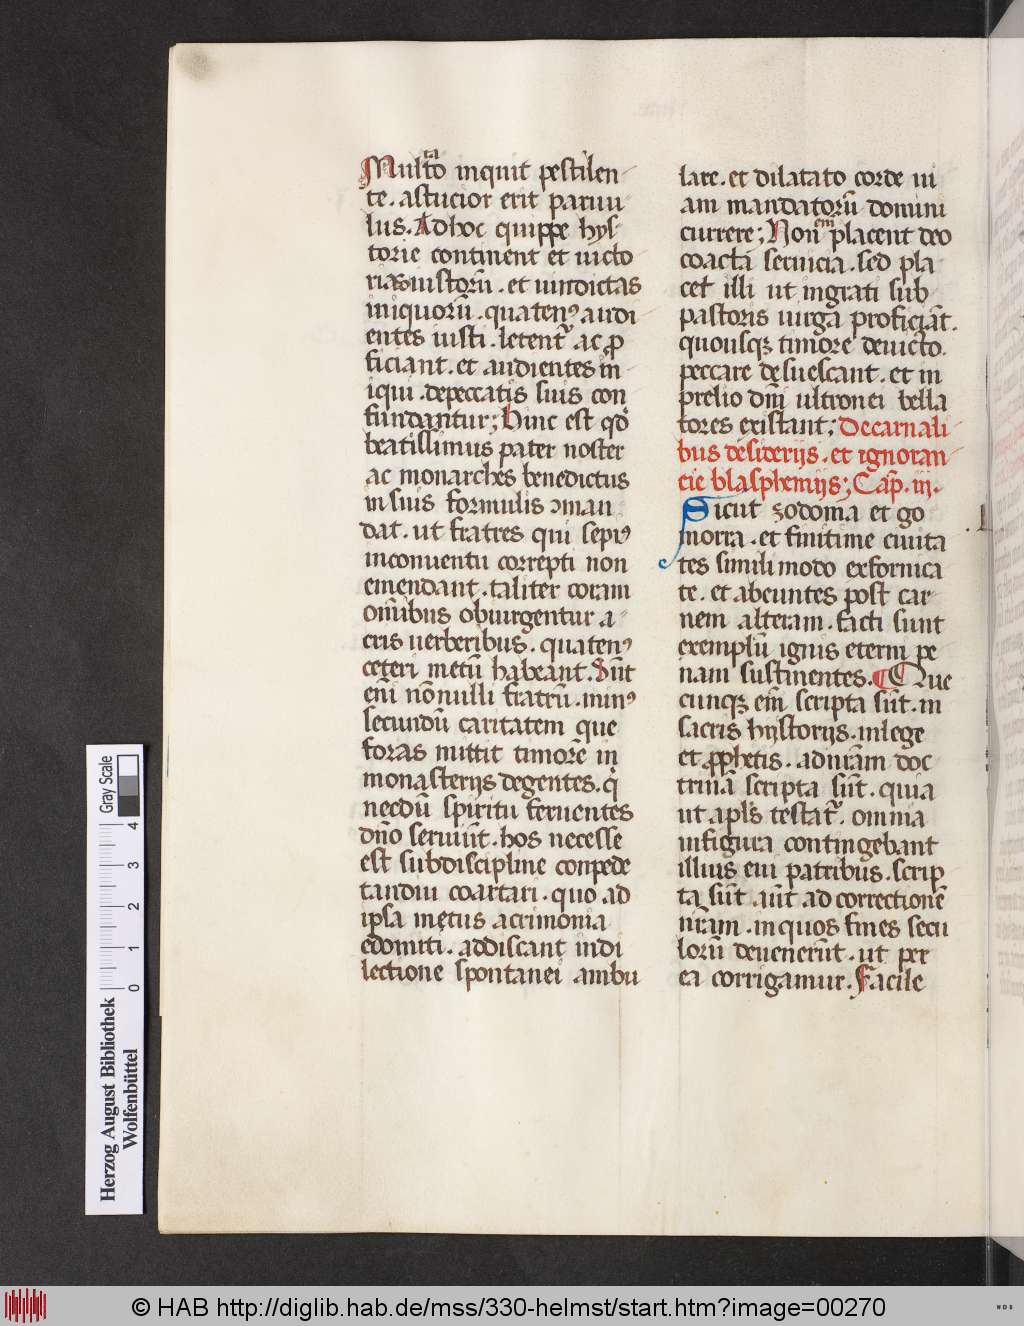 Multo inquit pestilen
te . astucior erit paruu
lus . Ad hoc quippe hys
torie continent et uicto
rias iustorū . et uindictas
iniquorū . quatenꝰ audi
entes iusti . letent᷑ . ac ꝓ
ficiant . et audientes in
iqui . de peccatis suis con
fundantur ; Hinc est qđ
beatissimus pater noster
ac monarches benedictus
in suis formulis ꝯman
dat . ut fratres qui sepiꝰ
inconuentu correpti non
emendant . taliter coram
om̄ibus obiurgentur a
cris uerberibus . quatenꝰ
ceteri metū habeant . Sūt
eni nōnulli fratrū . minꝰ
secundū caritatem que
foras mittit timorē in
monasterijs degentes . q̇
necdū spiritu feruentes
dn̄o seruiūt . hos necesse
est subdiscipline conpede
tandiu coartari . quo ad
ipsa metus acrimonia
edomiti . addiscant in di
lectione spontanei ambu
lare . et dilatato corde ui
am mandatorū domini
currere ; Non em̄ placent deo
coacta seruicia . sed pla
cet illi ut ingrati sub
pastoris uirga proficiāt .
quousqꝫ timore deuicto .
peccare desuescant . et in
prelio dn̄i ultronei bella
tores existant ; De carnali
bus desiderijs . et ignoran
cie blasphemijs ; Cap̄ . iij .
Sicut zodoma et go
morra . et finitime ciuita
tes simili modo exfornica
te . et abeuntes post car
nem alteram . facti sunt
exemplū ignis eterni pe
nam sustinentes . Que
cunqꝫ em̄ scripta sūt . in
sacris hystorijs . in lege
et ꝓphetis . ad nr̄am doc
trinā scripta sūt . quia
ut apl's testat᷑ . omnia
in figura contingebant
illius eui patribus . scrip
ta sūt aūt ad correctionē
nr̄am . in quos fines secu
lorū deuenerūt . ut per
ea corrigamur . Facile
Gray Scale
0 1 2 3 4
Herzog August Bibliothek
Wolfenbüttel
© HAB http://diglib.hab.de/mss/330-helmst/start.htm?image=00270